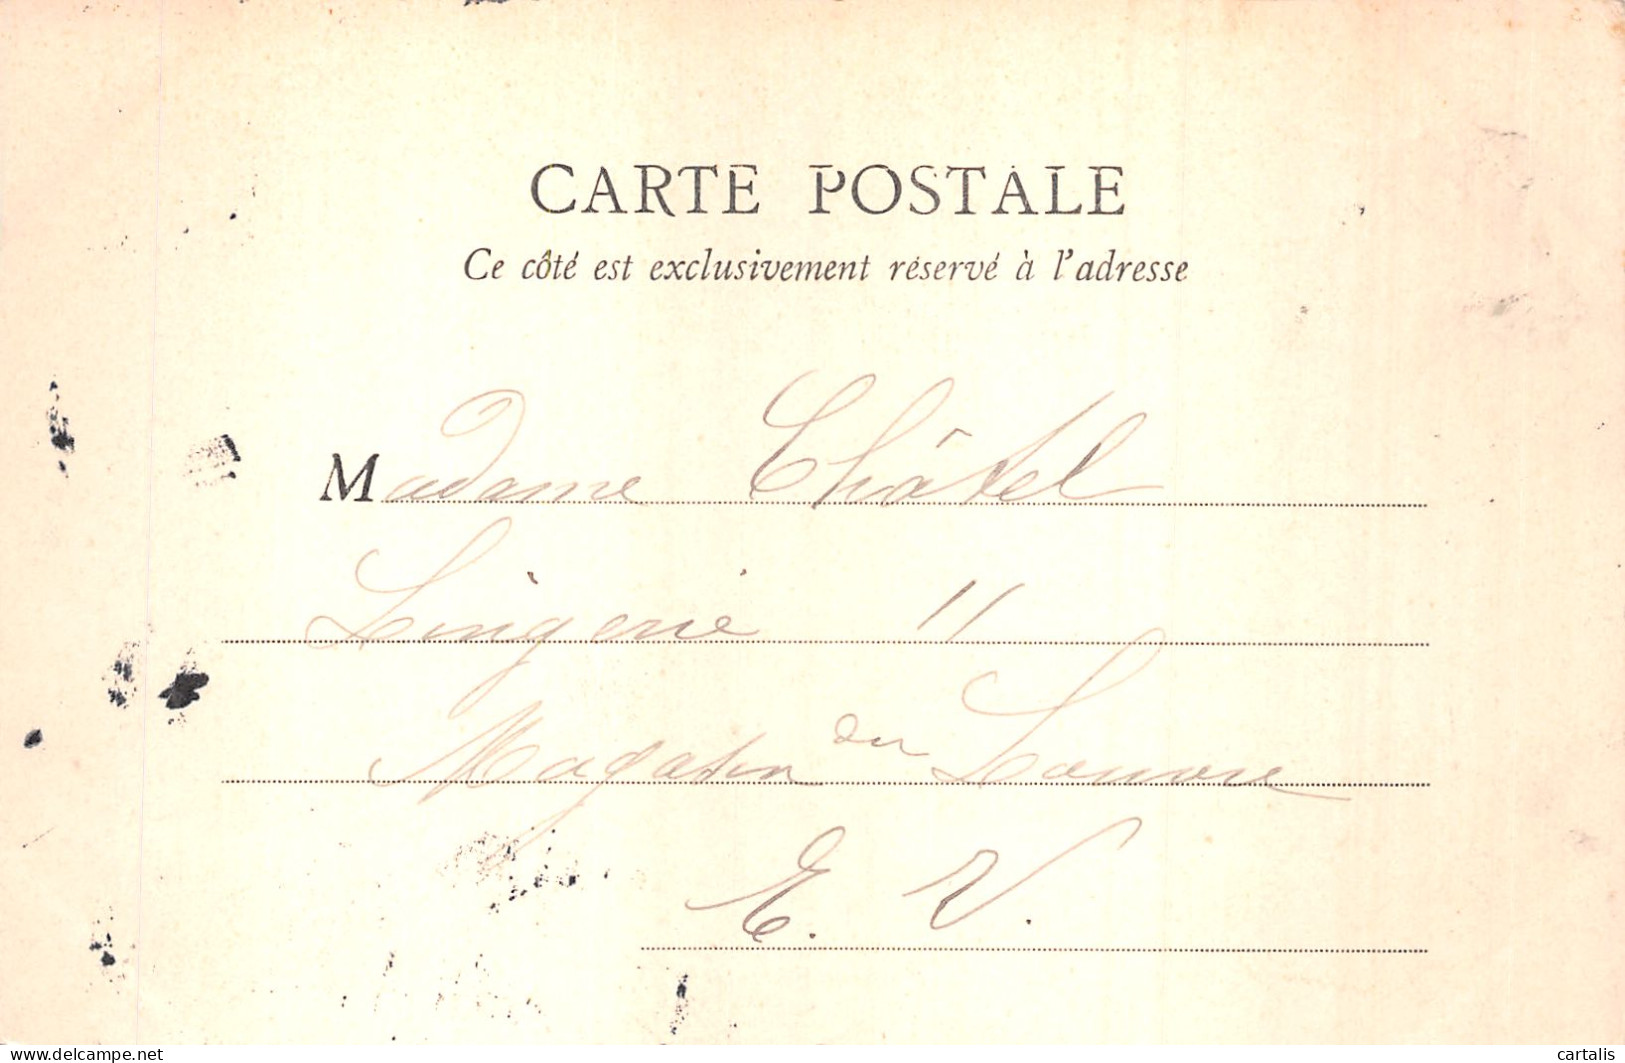 CARTE POSTALE
Ce côté est exclusivement réservé à l'adresse
Madame Châtel
Lingerie 11
Magasin du Louvre
E. V.
www.delcampe.net
cartalis